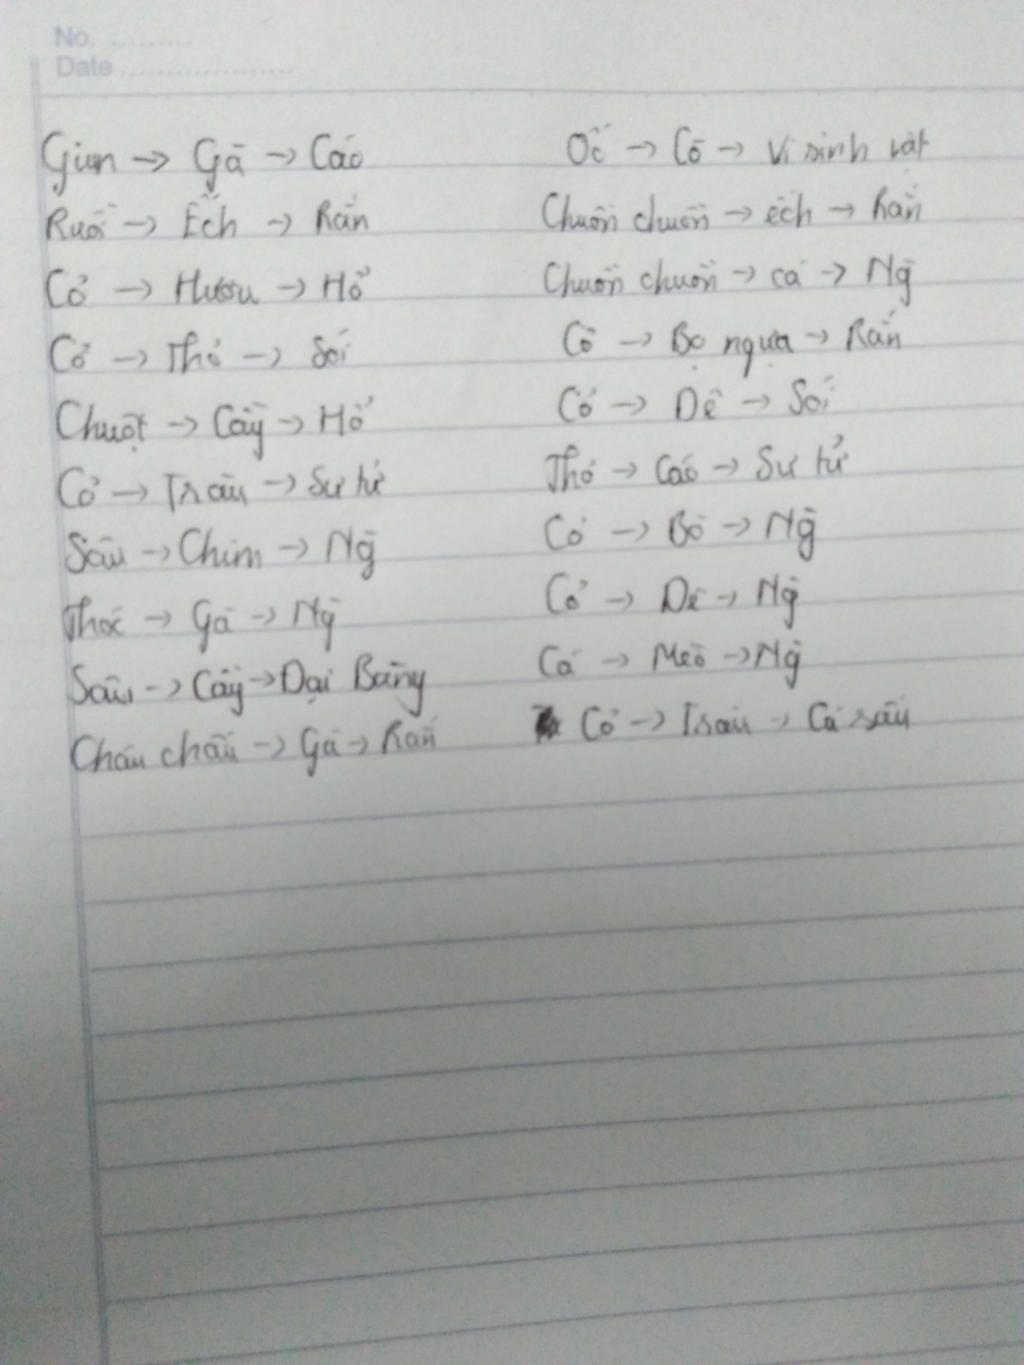 No. ..........
Date ....................
Giun → Gà → Cáo
Ruồi → Ếch → Rắn
Cỏ → Hươu → Hổ
Cỏ → Thỏ → Sói
Chuột → Cầy → Hổ
Cỏ → Trâu → Sư tử
Sâu → Chim → Ng
Thóc → Gà → Ng
Sâu → Cầy → Đại Bàng
Châu chấu → Gà → Rắn
Ốc → Cò → Vi sinh vật
Chuồn chuồn → ếch → Rắn
Chuồn chuồn → cá → Ng
Cỏ → Bọ ngựa → Rắn
Cỏ → Dê → Sói
Thỏ → Cáo → Sư tử
Cỏ → Bò → Ng
Cỏ → Dê → Ng
Cá → Mèo → Ng
Cỏ → Trâu → Cá sấu